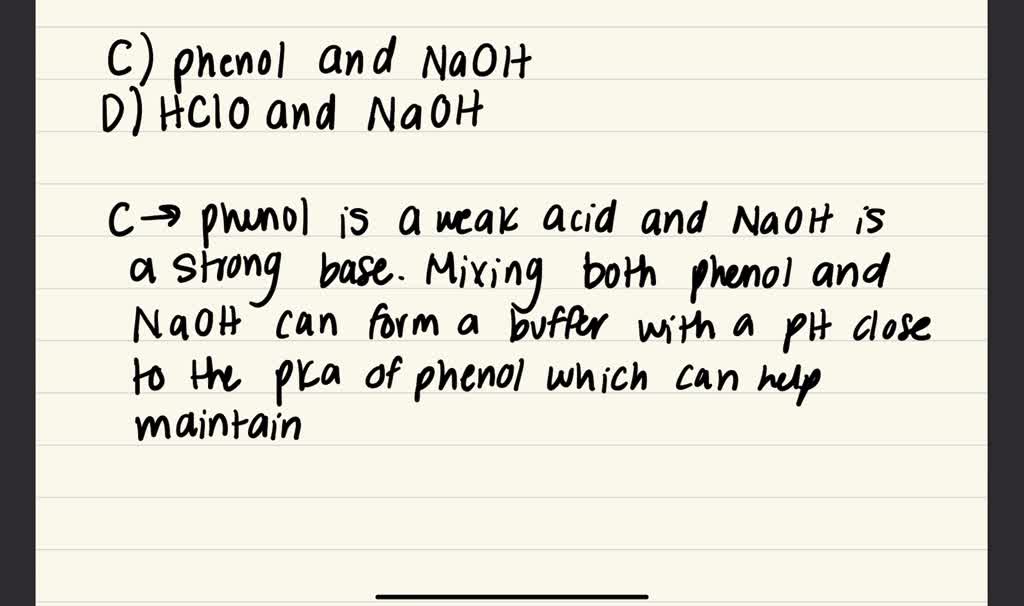 C) phenol and NaOH
D) HClO and NaOH
C → phenol is a weak acid and NaOH is
a strong base. Mixing both phenol and
NaOH can form a buffer with a pH close
to the pKa of phenol which can help
maintain